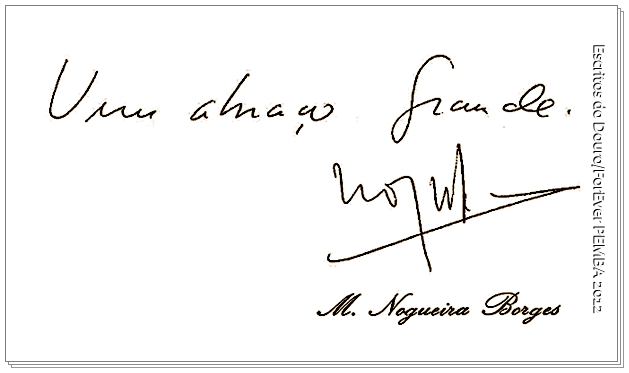 Um abraço grande.
M. Nogueira Borges
Escritos do Douro/ForEver PEMBA 2022